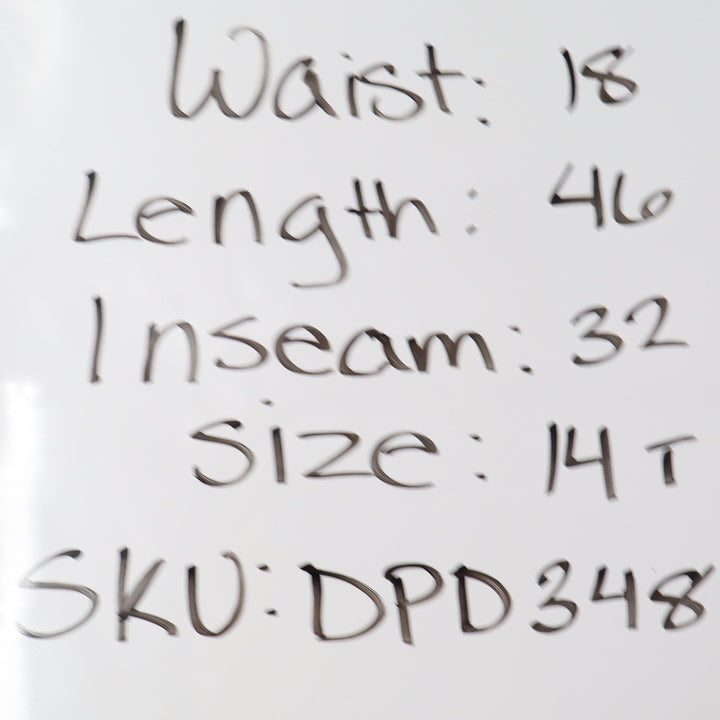 Waist: 18
Length: 46
Inseam: 32
Size: 14 T
SKU: DPD348